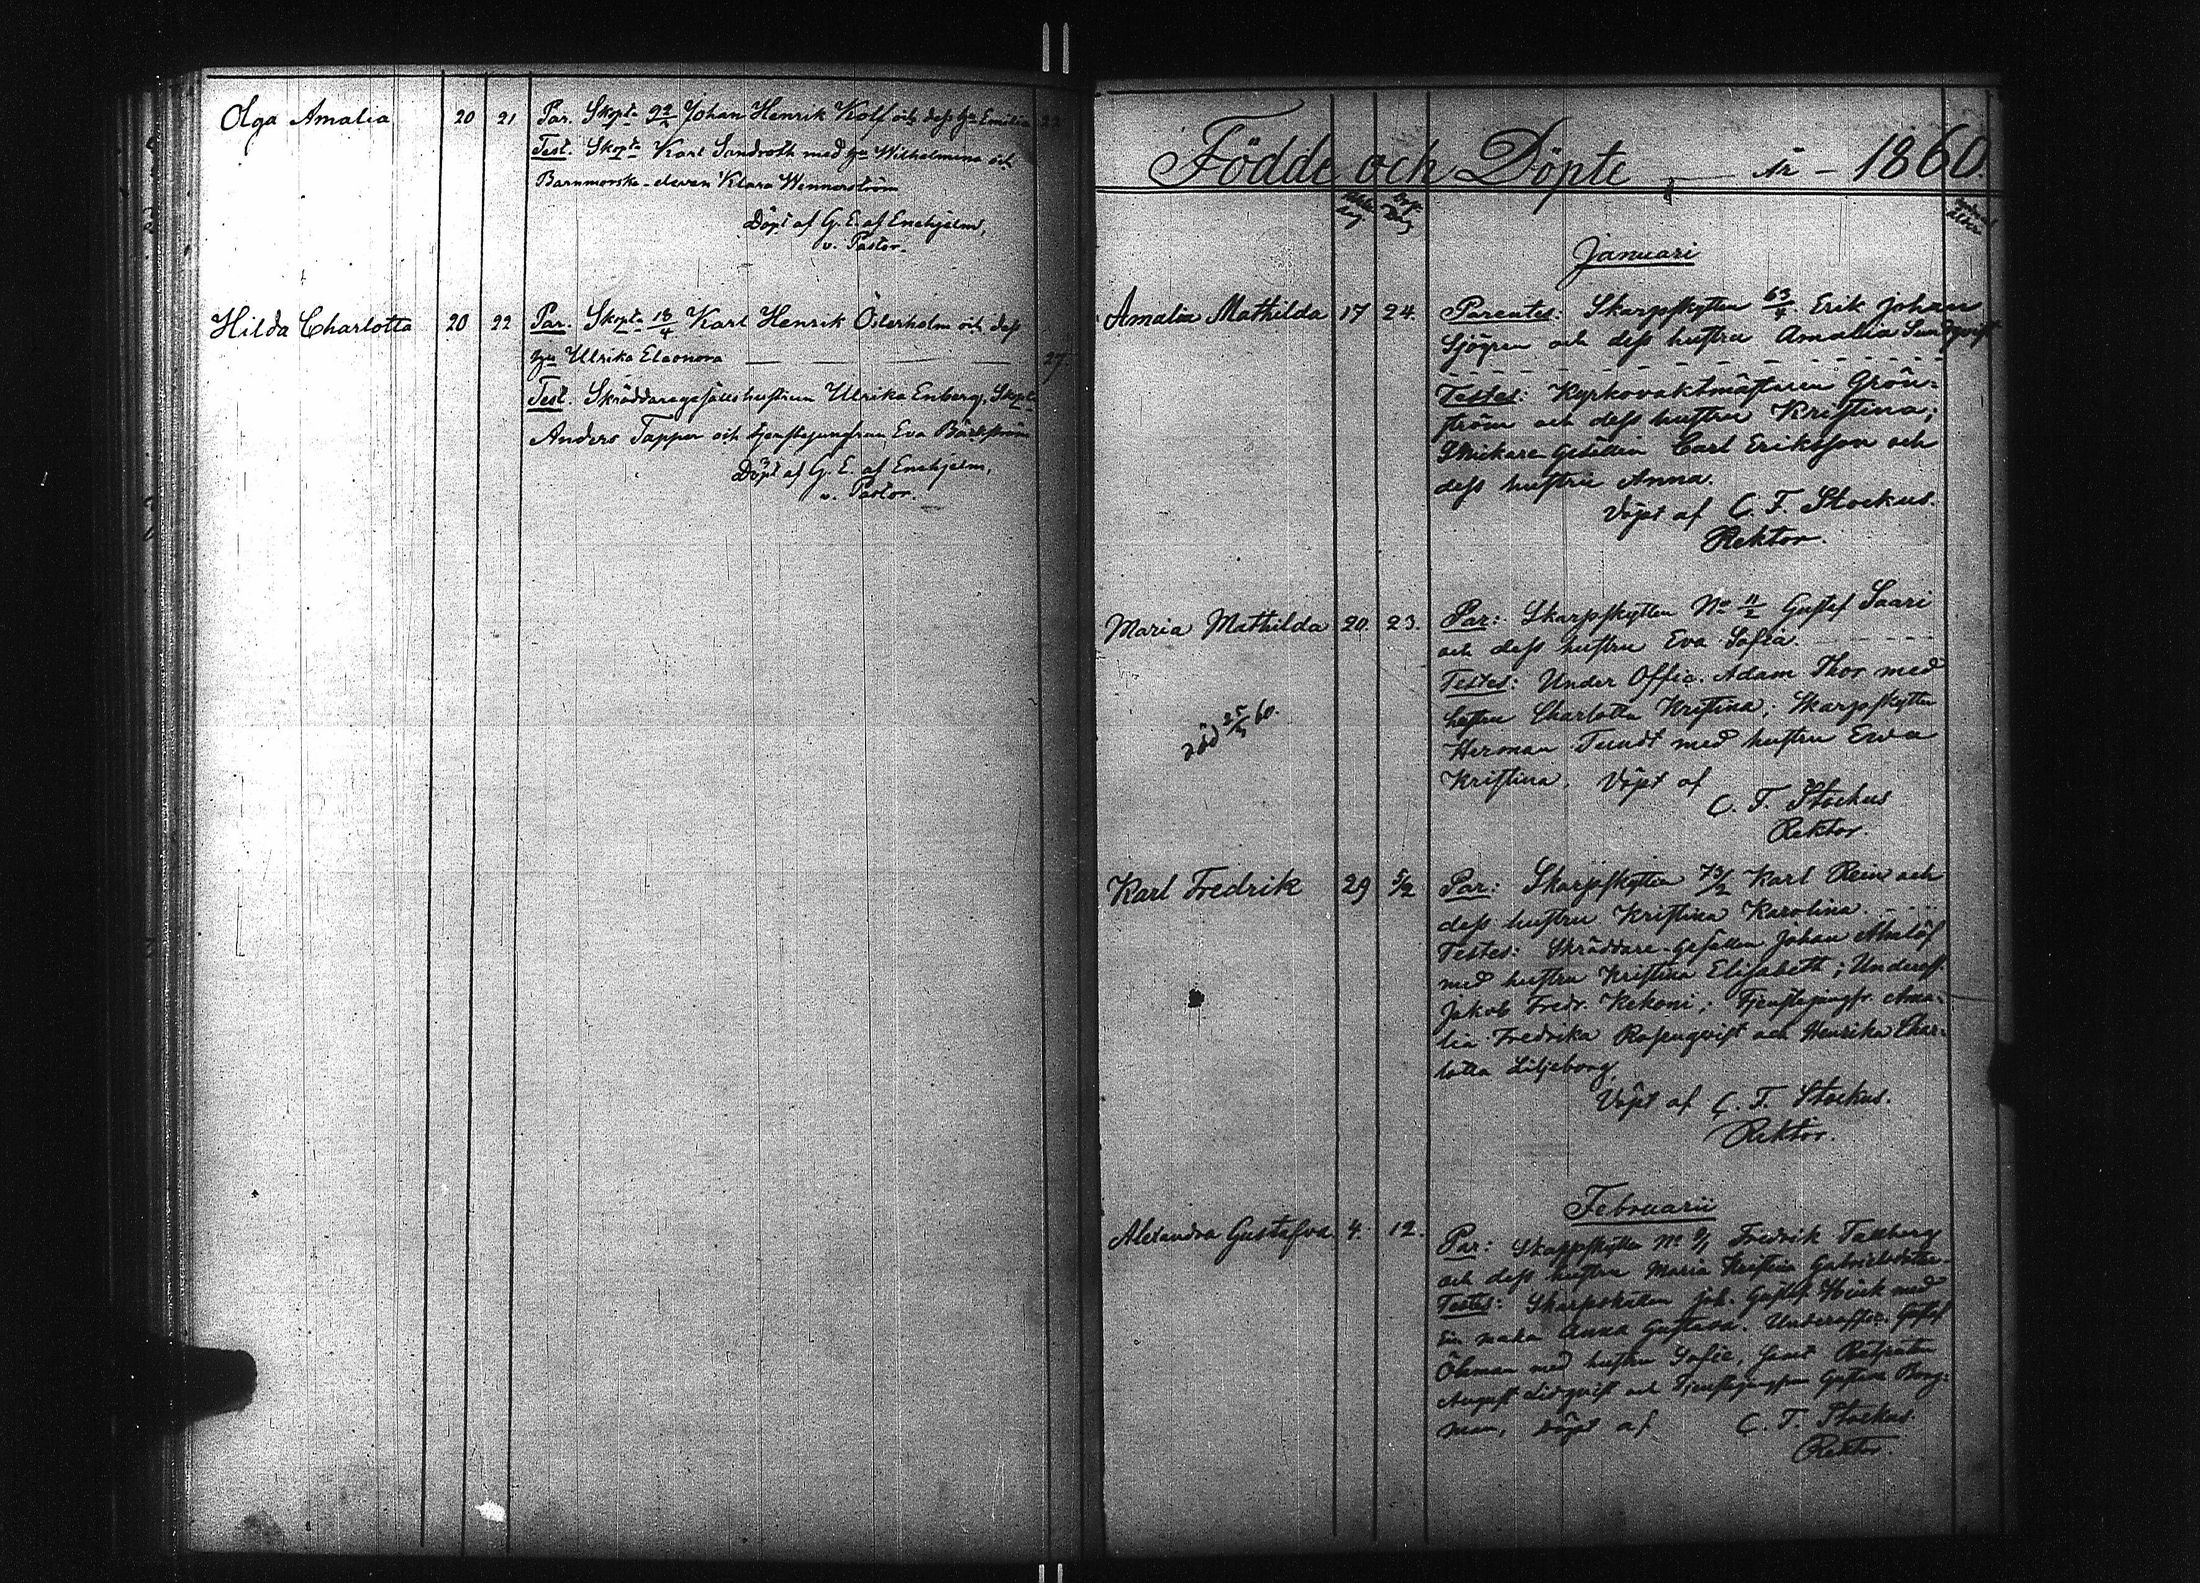 Olga Amalia 20 21 Par. Skpt. 92/2 Johan Henrik Kolf och dess hu Emilia 22
Test. Skpt. Karl Sandroth med hu Wilhelmina och
Barnmorske-eleven Klara Wennerström
Döpt af G. E. af Enehjelm,
v. Pastor.
Hilda Charlotta 20 22 Par. Skpt. 18/4 Karl Henrik Österholm och dess
hu Ulrika Eleonora 27.
Test. Skräddaregesällshustrun Ulrika Enberg, Skpt.
Anders Tapper och tjenstejungfrun Eva Bäckström
Döpt af G. E. af Enehjelm,
v. Pastor.
Födde och Döpte År - 1860.
Januari
Amalia Mathilda 17 24 Parentes: Skarpskytten 63/4 Erik Johan
Sjögren och dess hustru Amalia Sundqvist
Testes: Kyrkovaktmästaren Grön-
ström och dess hustru Kristina;
Snickare Gesällen Carl Eriksson och
dess hustru Anna.
Döpt af C. F. Stockus.
Rektor.
Maria Mathilda 20. 23. Par: Skarpskytten No 11/2 Gustaf Saari
och dess hustru Eva Sofia.
Testes: Under Offic. Adam Thor med
hustru Charlotta Kristina; Skarpskytten
död 25/5 60.
Herman Tundt med hustru Ewa
Kristina. Döpt af
C. F. Stockus
Rektor.
Karl Fredrik 29 5/2 Par: Skarpskytten 73/2 Karl Rein och
dess hustru Kristina Karolina
Testes: Skräddare-Gesällen Johan Almlöf
med hustru Kristina Elisabeth; Underoff.
Jakob Fredr. Kekoni; Tjenstejungfr. Ama-
lia Fredrika Rosenqvist och Henrika Char-
lotta Liljeborg
Döpt af C. F. Stockus.
Rektor.
Februarii
Alexandra Gustafva 4. 12. Par: Skarpskytten No 9/1 Fredrik Takberg
och dess hustru Maria Kristina Gabrielsdotter.
Testes: Skarpskytten Joh. Gustaf Höök med
sin maka Anna Gustava. Underoffic. Gustaf
Öhman med hustru Sofie, samt
August Lidqvist och Tjenstejungfrun Gustava Berg-
man, döpt af C. F. Stockus.
Rektor.